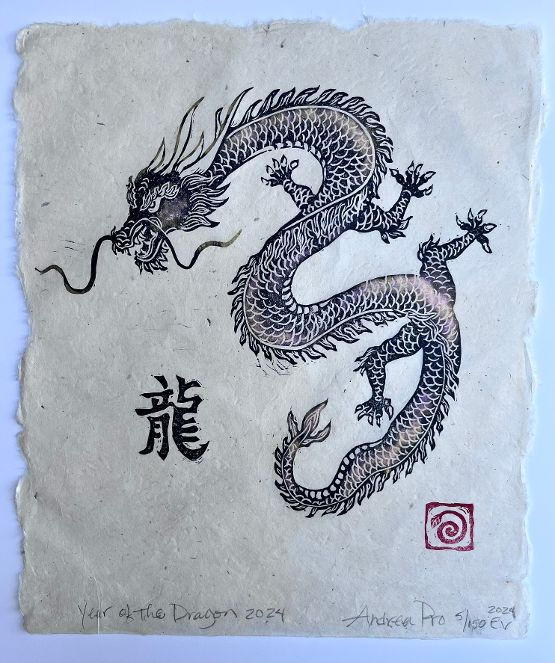 龍
Year of the Dragon 2024
Andreea Pro 5/150 EV
2024